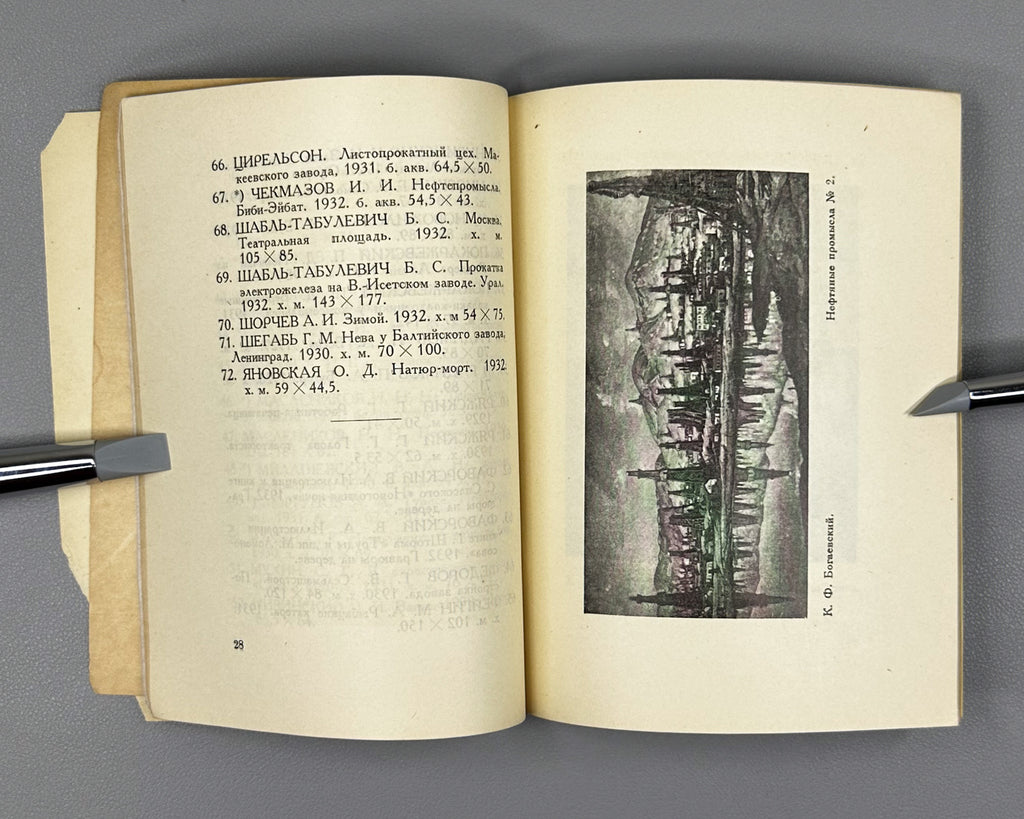 66. ЦИРЕЛЬСОН. Листопрокатный цех. Ма-
кеевского завода, 1931. б. акв. 64,5 × 50.
67. *) ЧЕКМАЗОВ И. И. Нефтепромысла.
Биби-Эйбат. 1932. б. акв. 54,5 × 43.
68. ШАБЛЬ-ТАБУЛЕВИЧ Б. С. Москва.
Театральная площадь. 1932. х. м.
105 × 85.
69. ШАБЛЬ-ТАБУЛЕВИЧ Б. С. Прокатка
электрожелеза на В.-Исетском заводе. Урал.
1932. х. м. 143 × 177.
70. ШОРЧЕВ А. И. Зимой. 1932. х. м 54 × 75.
71. ШЕГАБЬ Г. М. Нева у Балтийского завода,
Ленинград. 1930. х. м. 70 × 100.
72. ЯНОВСКАЯ О. Д. Натюр-морт. 1932.
х. м. 59 × 44,5.
28
К. Ф. Богаевский. Нефтяные промысла № 2.